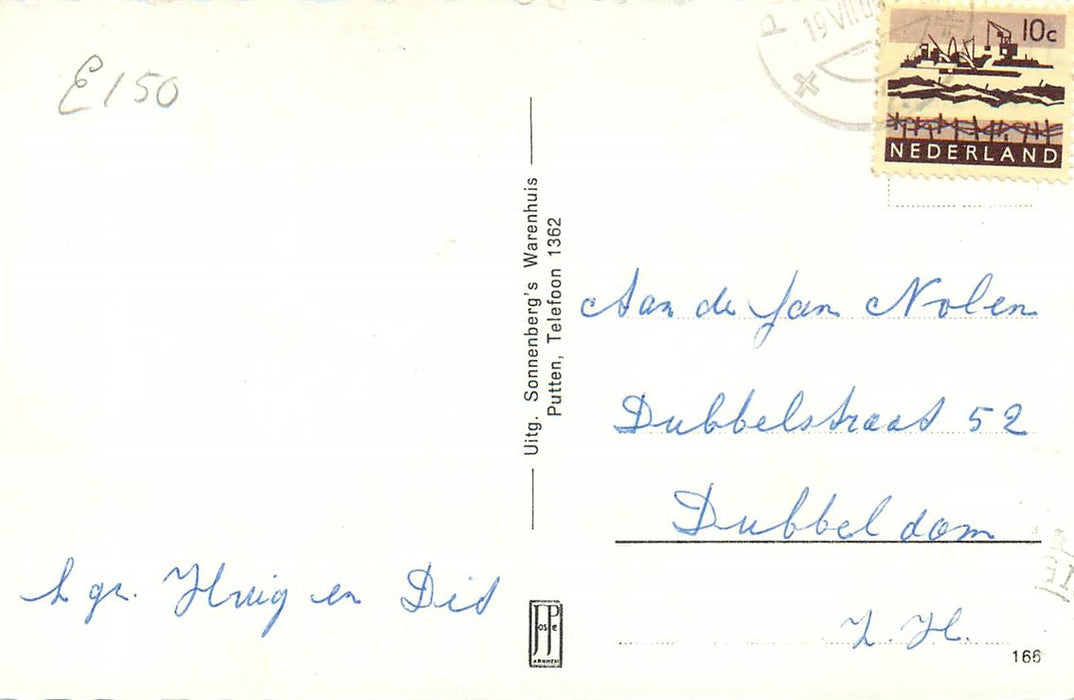 E150
10c
NEDERLAND
19 VII
Uitg. Sonnenberg's Warenhuis
Putten, Telefoon 1362
Aan de Jan Nolen
Dubbelstraat 52
Dubbeldam
Z.H.
h gr. Huig en Did
JosPe
ARNHEM
166